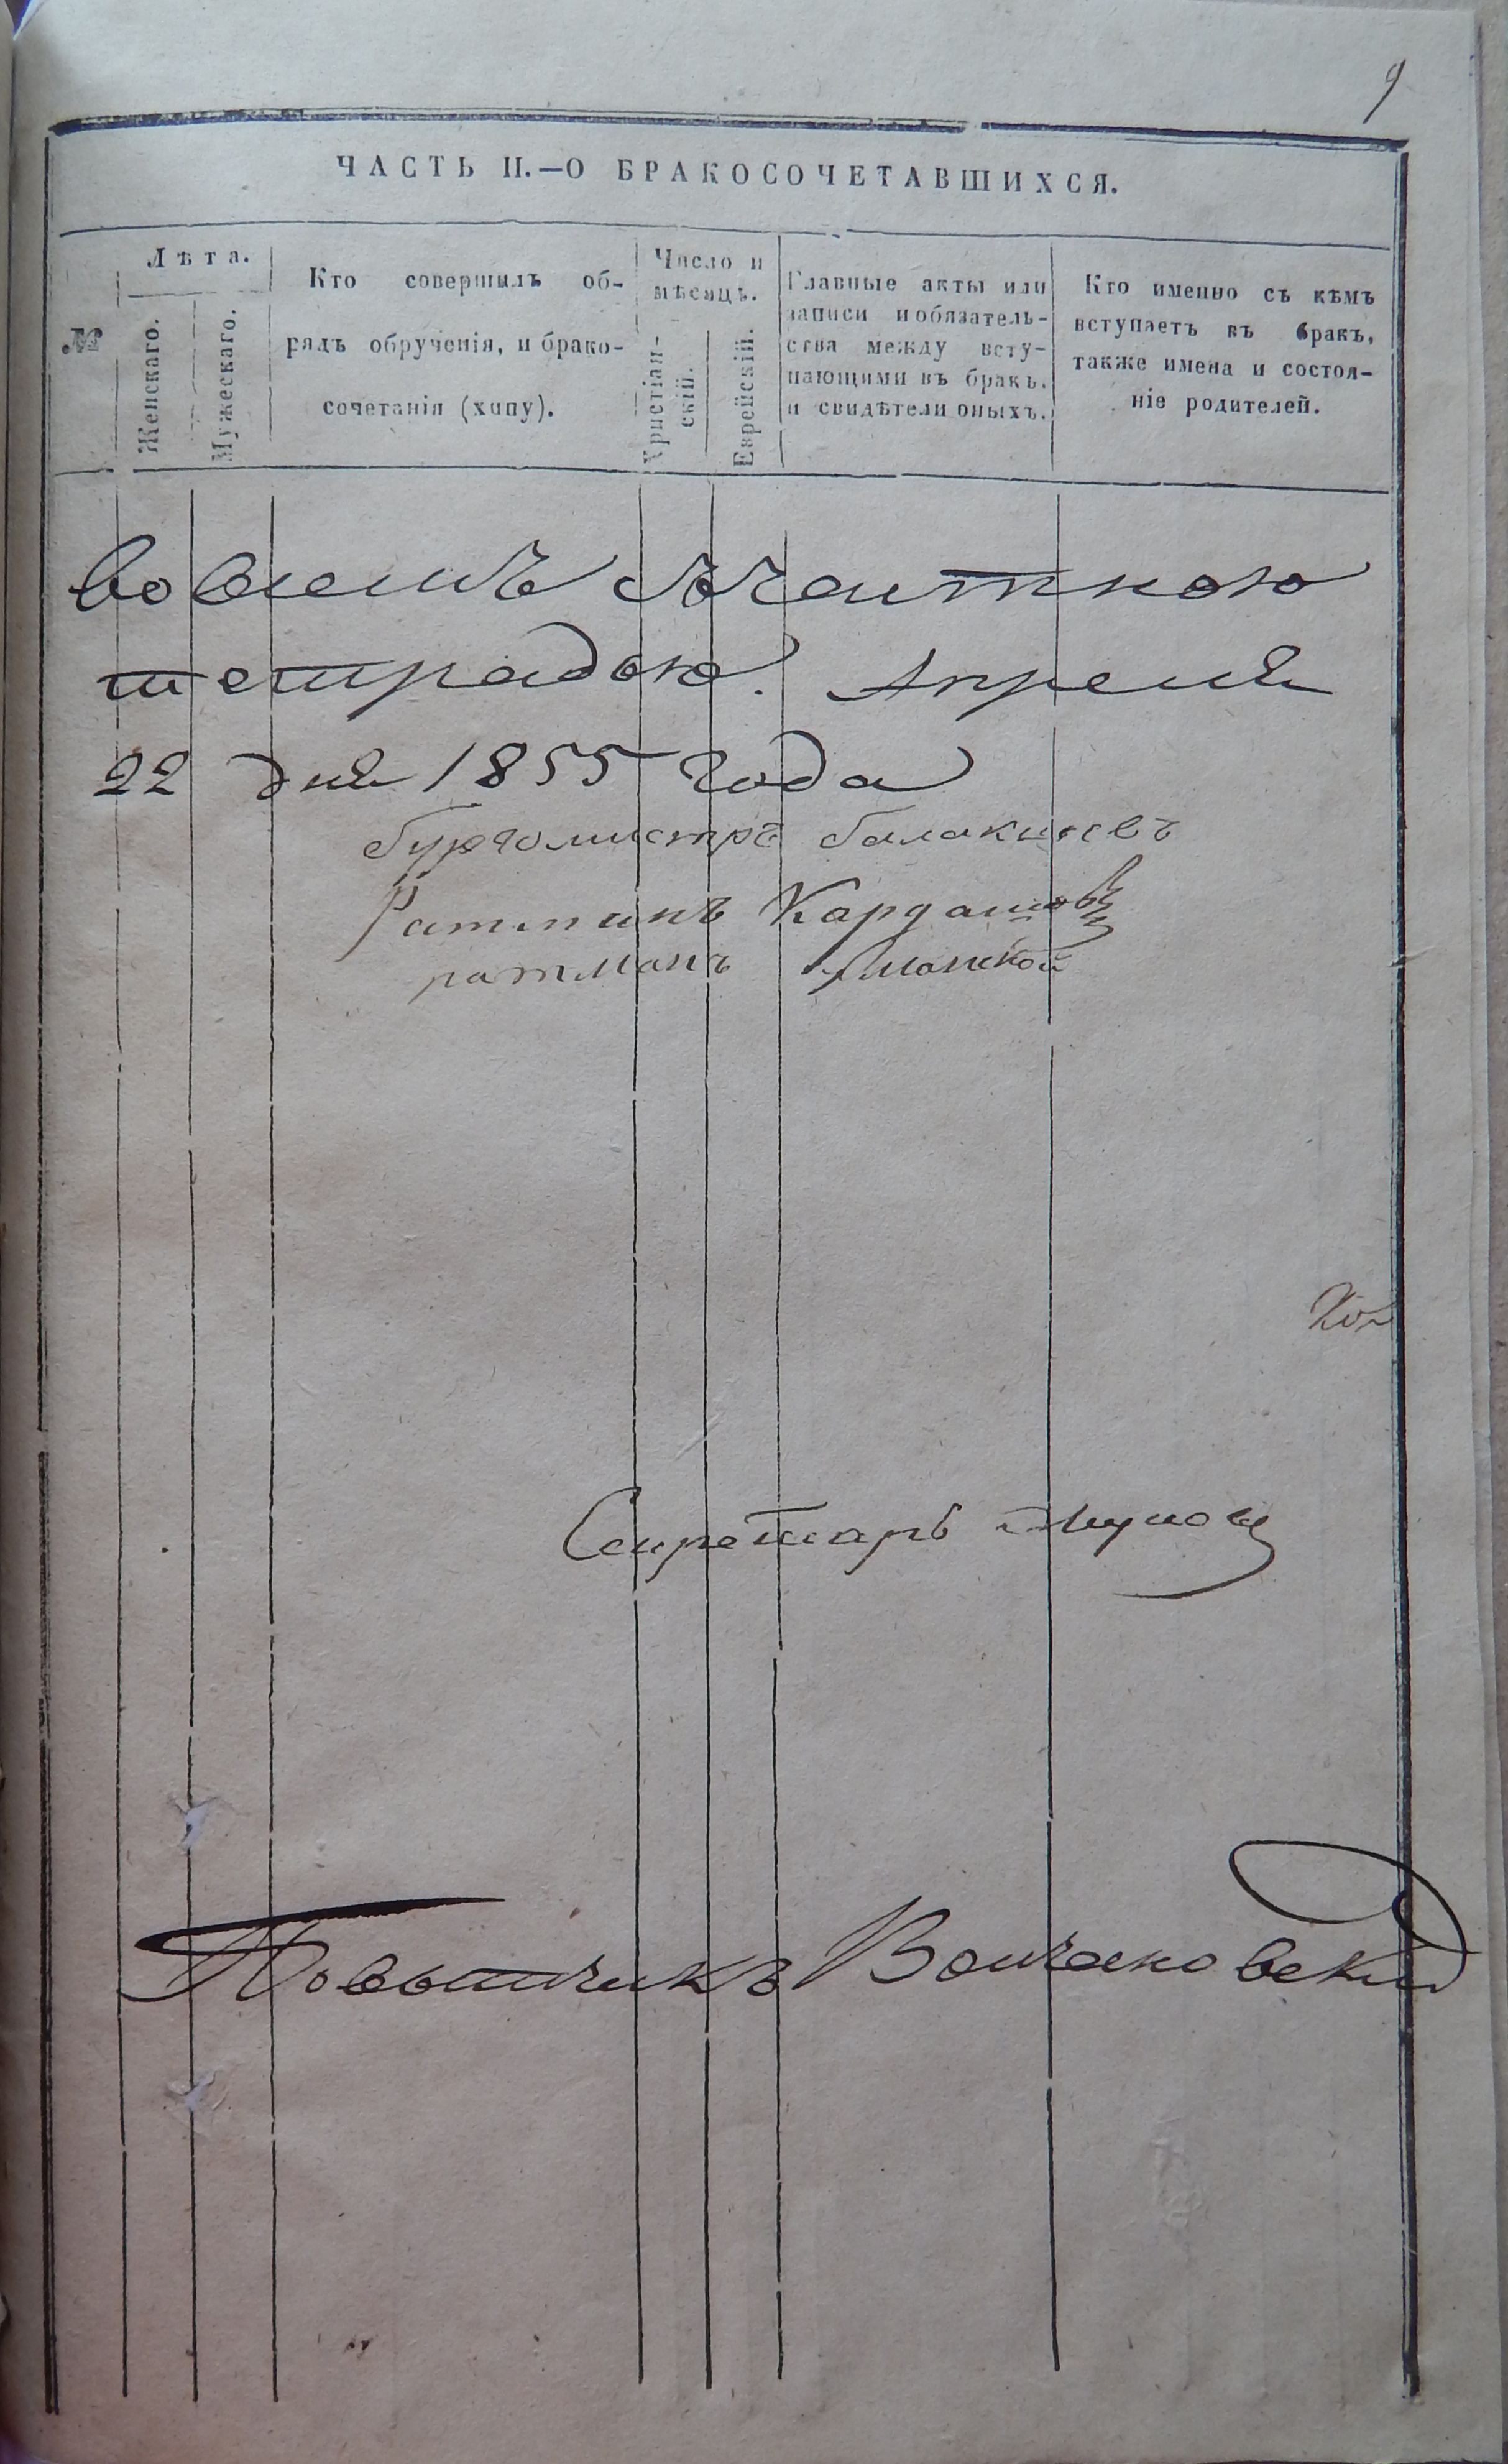 9
ЧАСТЬ II.—О БРАКОСОЧЕТАВШИХСЯ.
№
Лѣта.
Женскаго.
Мужескаго.
Кто совершилъ об-
рядъ обрученія, и брако-
сочетанія (хупу).
Число и
мѣсяцъ.
Христіан-
скій.
Еврейскій.
Главные акты или
записи и обязатель-
ства между всту-
пающими въ бракъ.
и свидѣтели оныхъ.
Кто именно съ кѣмъ
вступаетъ въ бракъ,
также имена и состоя-
ніе родителей.
тетрадью. Апреля
22 дня 1855 года
бургомистръ
Ратманъ Кардашовъ
ратманъ
Секретарь
Повытчикъ